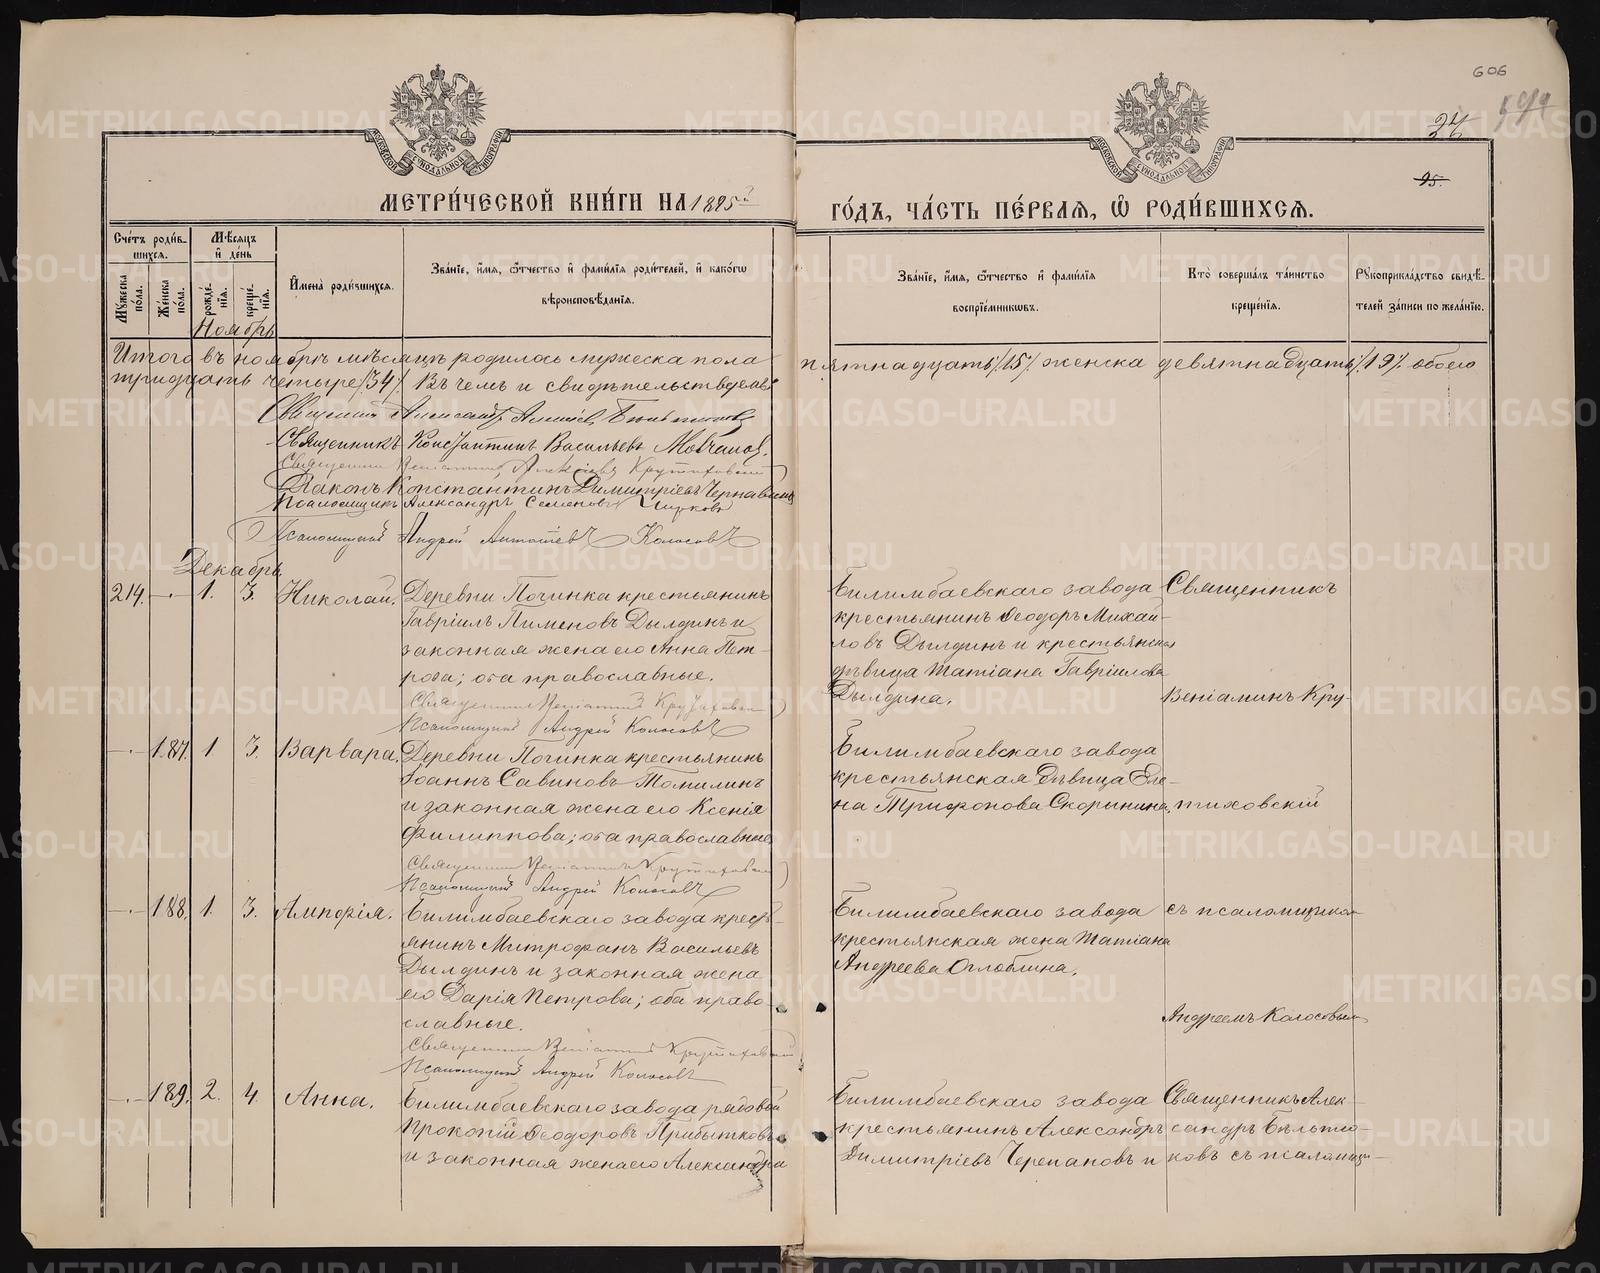 606
27
95.
МОСКОВСКОЙ СѴНОДАЛЬНОЙ ТИПОГРАФІИ
МОСКОВСКОЙ СѴНОДАЛЬНОЙ ТИПОГРАФІИ
МЕТРИ́ЧЕСКОЙ КНИ́ГИ НА 1895й
ГО́ДЪ, ЧА́СТЬ ПЕ́РВАЯ, Ѡ РОДИ́ВШИХСЯ.
Сче́тъ роди́в-
шихся.
Мѣ́сяцъ
и҆ де́нь
Мꙋ́жеска по́ла.
Же́нска по́ла.
рожде́-
нїя.
креще́-
нїя.
И҆мена̀ роди́вшихся.
Зва́нїе, и҆́мя, ѻ҆́тчество и҆ фами́лїя роди́телей, и҆ како́гѡ
вѣроисповѣ́данїя.
Зва́нїе, и҆́мя, ѻ҆́тчество и҆ фами́лїя
воспрїе́мникѡвъ.
Кто̀ соверша́лъ та́инство
креще́нїя.
Рꙋкоприкла́дство свидѣ́-
телей за́писи по жела́нїю.
Ноябрь
Итого въ ноябрѣ мѣсяцѣ родилось мужеска пола пятнадцать /15/ женска девятнадцать /19/. обоего
тридцать четыре /34/. Въ чемъ и свидѣтельствуемъ
Священникъ Александръ Бѣльтюковъ
Священникъ Константинъ Васильевъ Мовчановъ.
Священникъ Веніаминъ Алексіевъ Крутиховскій
Діаконъ Константинъ Димитріевъ Чернавинъ
Псаломщикъ Александръ Семеновъ Чирковъ
Псаломщикъ Андрей Колосовъ
Декабрь
214. -.- 1. 3. Николай. Деревни Починка крестьянинъ
Гавріилъ Пименовъ Дылдинъ и
законная жена его Анна Пет-
рова; оба православные.
Священникъ Веніаминъ Крутиховскій
Псаломщикъ Андрей Колосовъ
Билимбаевскаго завода
крестьянинъ Ѳеодоръ Михай-
ловъ Дылдинъ и крестьянская
дѣвица Татіана Гавріилова
Дылдина.
Священникъ
Веніаминъ Кру-
-.- 187. 1 3. Варвара. Деревни Починка крестьянинъ
Іоаннъ Савиновъ Томилинъ
и законная жена его Ксенія
Филиппова; оба православные
Священникъ Веніаминъ Крутиховскій
Псаломщикъ Андрей Колосовъ
Билимбаевскаго завода
крестьянская дѣвица Еле-
на Трифонова Скорынина.
тиховскій
-.- 188. 1. 3. Ампфія. Билимбаевскаго завода кресть-
янинъ Митрофанъ Васильевъ
Дылдинъ и законная жена
его Дарія Петрова; оба право-
славные.
Священникъ Веніаминъ Крутиховскій
Псаломщикъ Андрей Колосовъ
Билимбаевскаго завода
крестьянская жена Татіана
Андреева Оглоблина.
съ псаломщикомъ
Андреемъ Колосовымъ
-.- 189. 2. 4. Анна. Билимбаевскаго завода рядовой
Прокопій Ѳеодоровъ Прибытковъ
и законная жена его Александра
Билимбаевскаго завода
крестьянинъ Александръ
Димитріевъ Черепановъ и
Священникъ Алек-
сандръ Бѣльтю-
ковъ съ псаломщи-